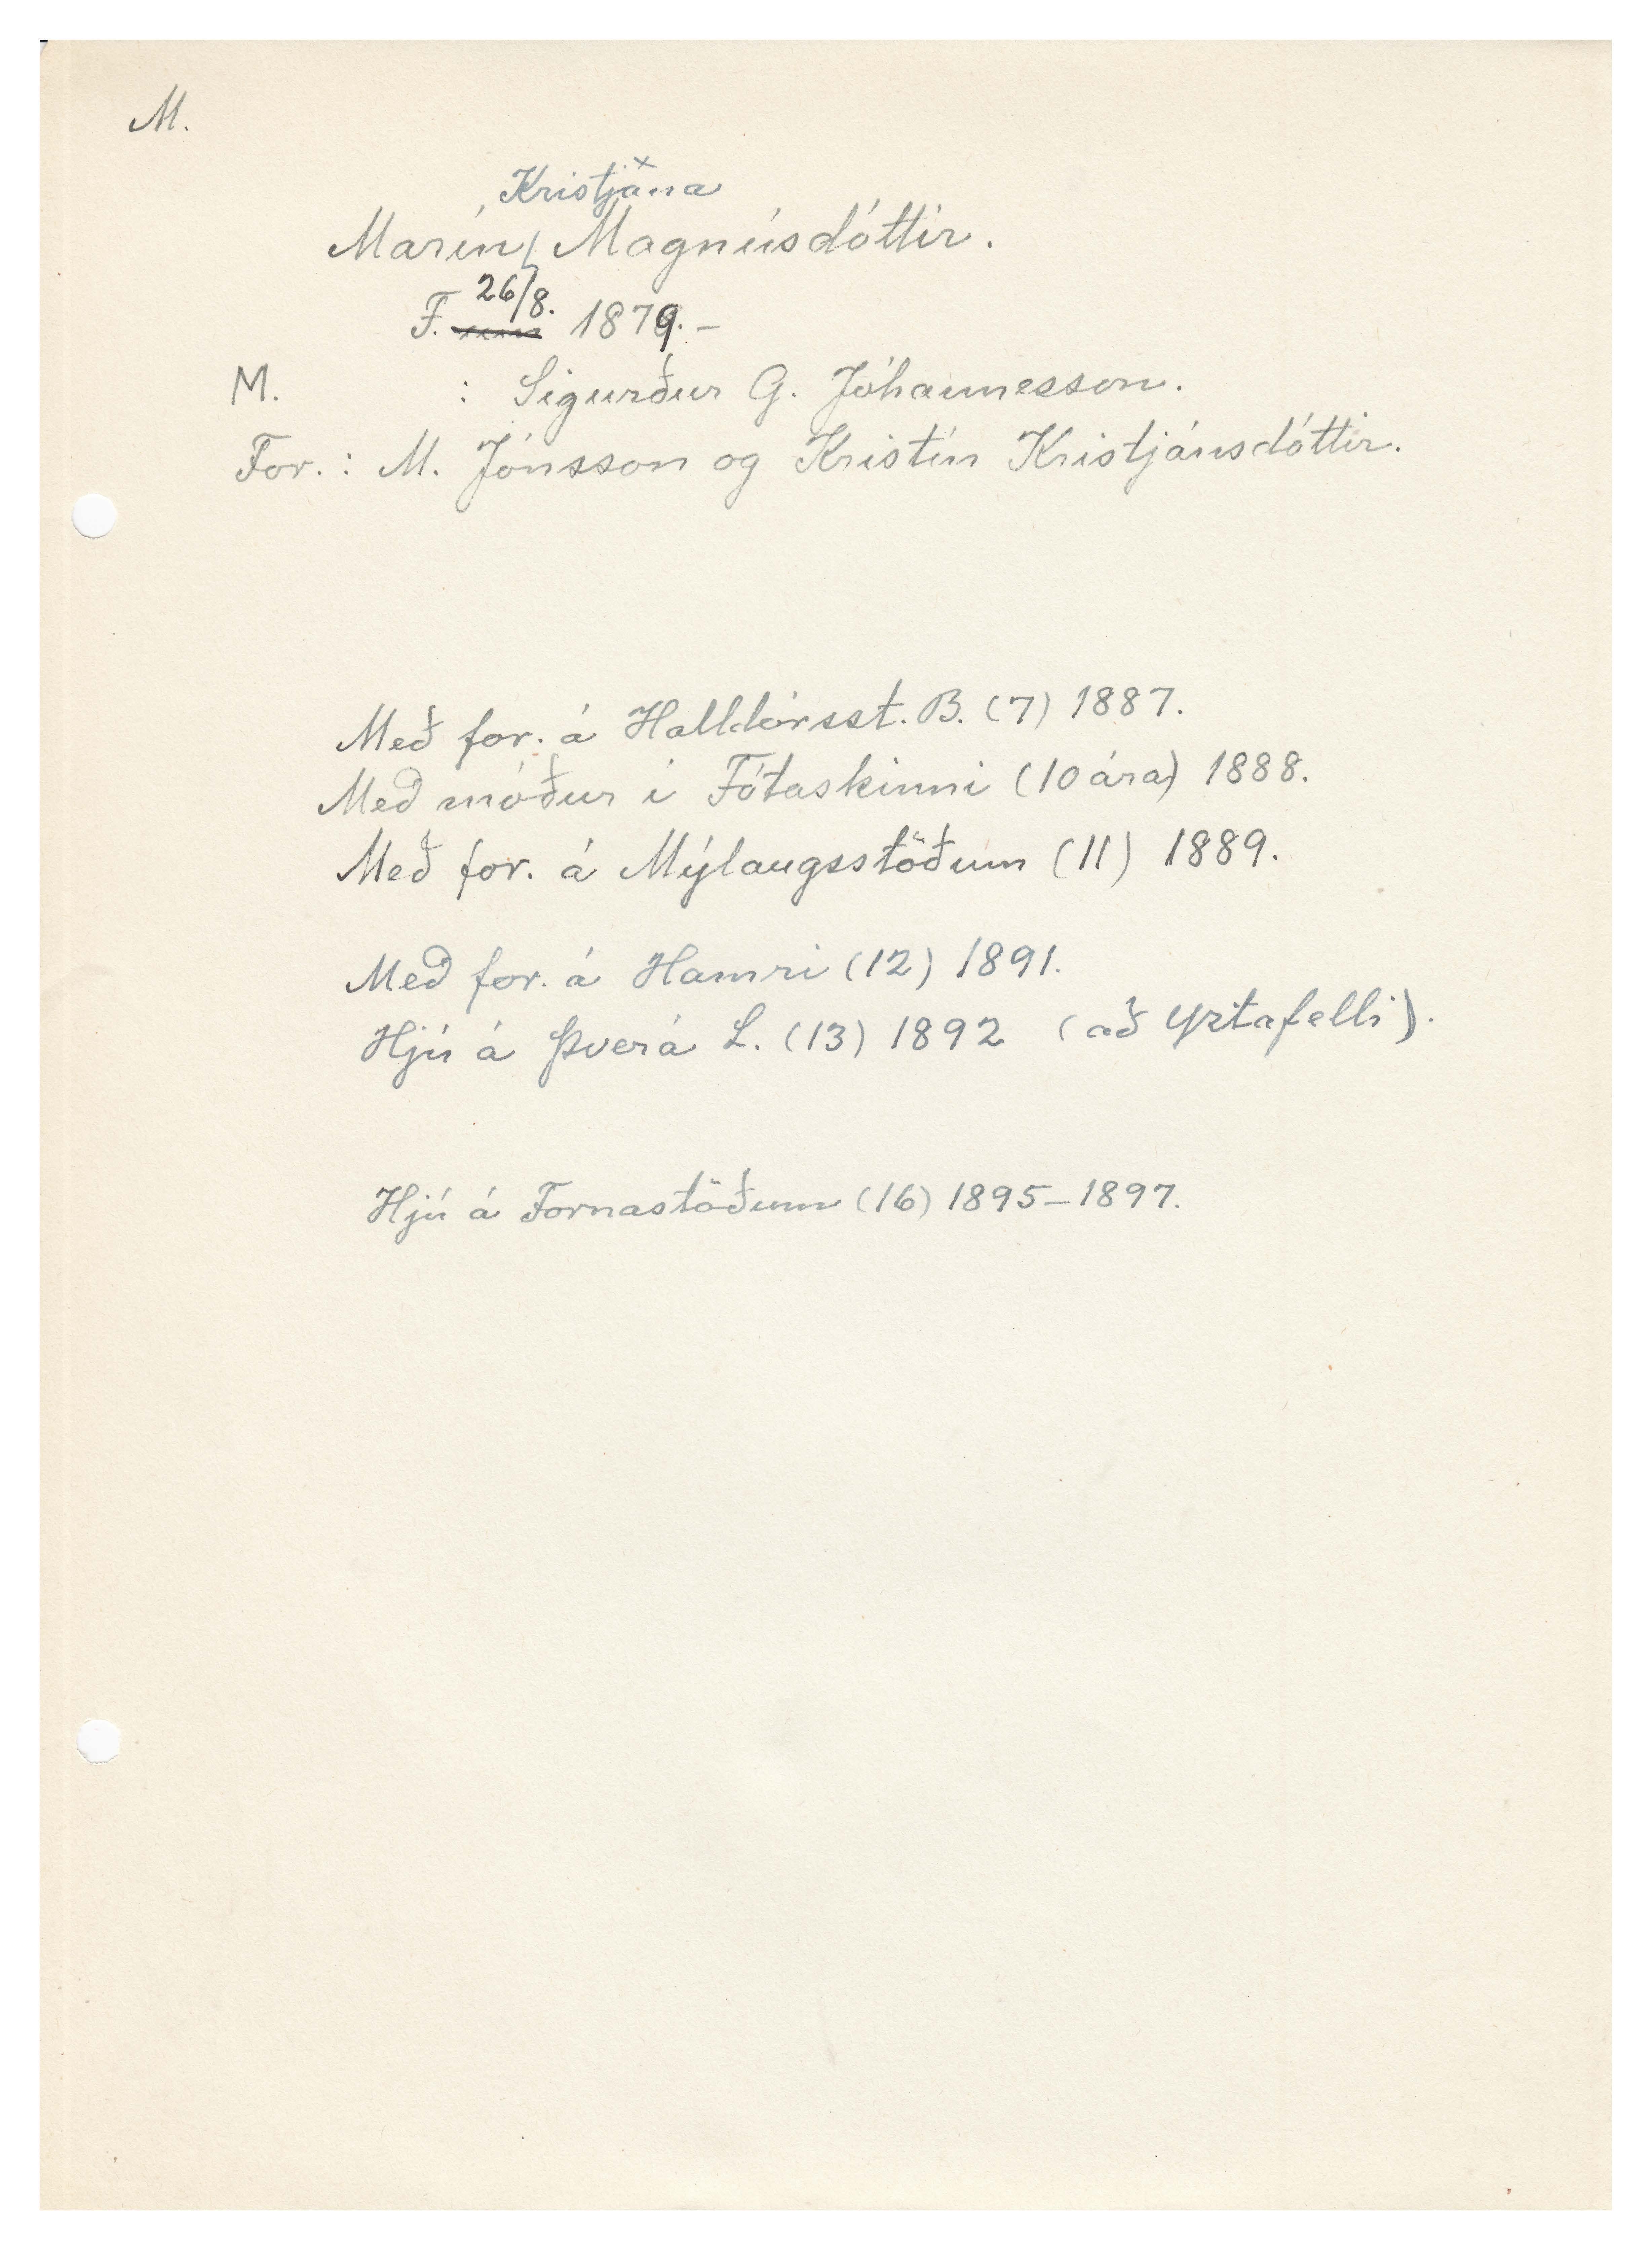 M.
Kristjána
Marín Magnúsdóttir.
26/8.
F. 1879. -
M. : Sigurður G. Jóhannesson.
For. : M. Jónsson og Kristín Kristjánsdóttir.
Með for. á Halldórsst. B. (7) 1887.
Með móður í Fótaskinni (10 ára) 1888.
Með for. á Mýlaugsstöðum (11) 1889.
Með for. á Hamri (12) 1891.
Hjú á Þverá L. (13) 1892 (að Yztafelli).
Hjú á Fornastöðum (16) 1895-1897.